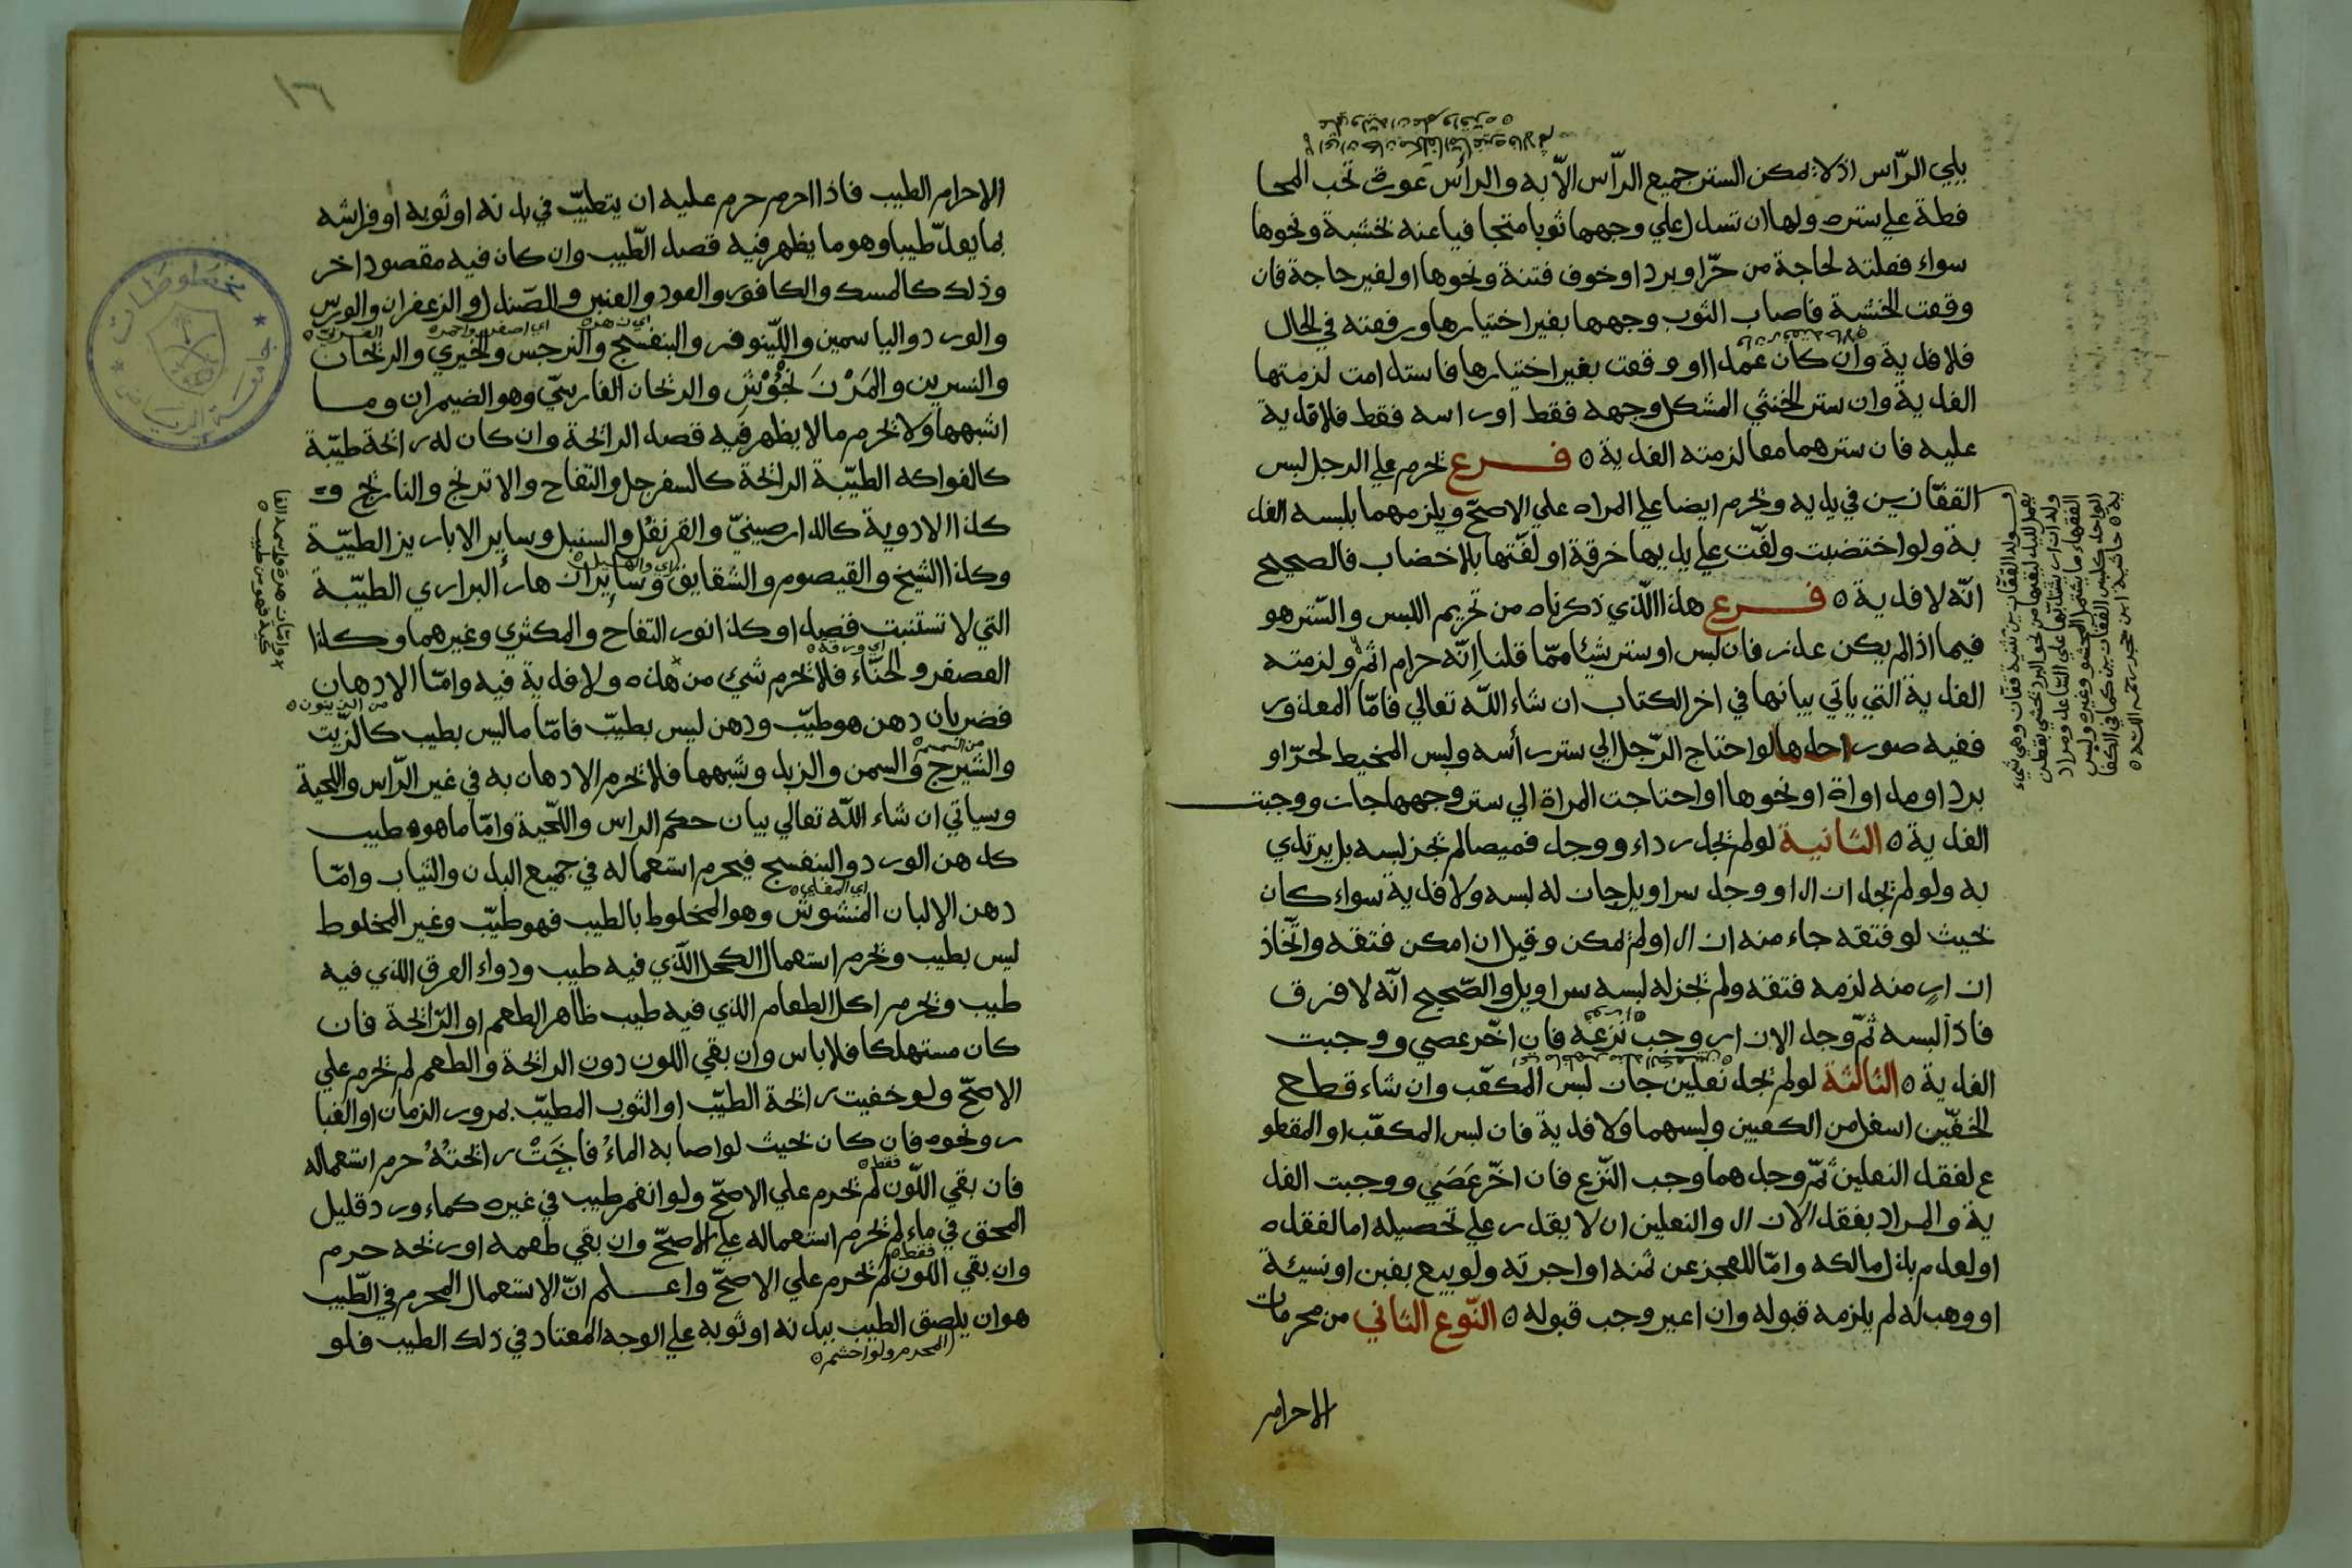 يلي الرّأس اذ لا يمكن الستر جميع الرّأس الّا به والرأس عورة تجب المحا
فظة علي ستره ولها ان تسدل علي وجهها ثوبا متجا فيا عنه بخشبة ونحوها
سواء فعلته لحاجة من حرّ او برد او خوف فتنة ونحوها او لغير حاجة فان
وقعت الخشبة فاصاب الثوب وجهها بغير اختيارها ورفعته في الحال
فلا فدية وان كان عمدا او وقعت بغير اختيارها فاستدامت لزمتها
الفدية وان ستر الخنثي المشكل وجهه فقط او راسه فقط فلا فدية
عليه فان سترهما معا لزمته الفدية ٥ فرع يحرم علي الرجل لبس
القفّازين في يديه ويحرم ايضا علي المراه علي الاصحّ ويلزمهما بلبسه الفد
ية ولو اختضبت ولفّت علي يديها خرقة او لفّتها بلا خضاب فالصحيح
انّه لا فدية ٥ فرع هذا الّذي ذكرناه من تحريم اللبس والسّتر هو
فيما اذا لم يكن عذر فان لبس او ستر شيئا ممّا قلنا انّه حرام اثم ولزمته
الفدية التي ياتي بيانها في اخر الكتاب ان شاء اللّه تعالي فامّا المعذور
ففيه صور احدها لو احتاج الرّجل الي ستر رأسه ولبس المخيط لحرّ او
برد او مداواة او نحوها او احتاجت المراة الي ستر وجهها جاز ووجبت
الفدية ٥ الثانية لو لم يجد رداء ووجد قميصا لم يجز لبسه بل يرتدي
به ولو لم يجد ازارا ووجد سراويل جاز له لبسه ولا فدية سواء كان
بحيث لو فتقه جاء منه ازار او لم يمكن وقيل ان امكن فتقه واتّخاذ
ازار منه لزمه فتقه ولم يجز له لبسه سراويل والصّحيح انّه لا فرق
فاذا لبسه ثمّ وجد الازار وجب نزعه فان اخّر عصي ووجبت
الفدية ٥ الثالثة لو لم يجد نعلين جاز لبس المكعّب وان شاء قطع
الخفّين اسفل من الكعبين ولبسهما ولا فدية فان لبس المكعّب او المقطو
ع لفقد النعلين ثمّ وجدهما وجب النّزع فان اخّر عَصَي ووجبت الفد
ية والمراد بفقد الازار والنعلين ان لا يقدر علي تحصيله اما لفقده
او لعدم بذل مالكه وامّا للعجز عن ثمنه او اجرته ولو بيع بغبن او نسيئة
او وهب له لم يلزمه قبوله وان اعير وجب قبوله ٥ النّوع الثاني من محرمات
الاحرام
ولد القفّازين تثنية قفّاز وهي شيء
يعمل لليد ليقيها من نحو البرد يحشي بقطن
الفقهاء ما يشمل المحشو وغيره ولبس
ية ٥ حاشية ابن حجر رحمه اللّه ٥
١٦
الاحرام الطيب فاذا احرم حرم عليه ان يتطيّب في بدنه او ثوبه او فراشه
بما يعدّ طيبا وهو ما يظهر فيه قصد الطّيب وان كان فيه مقصود اخر
وذلك كالمسك والكافور والعود والعنبر والصّندل والزعفران والورس
والورد والياسمين واللّينوفر والبنفسج والنرجس والخيري والريحان
والنسرين والمَرْزَنْجُوْش والريحان الفارسيّ وهو الضيمران وما
اشبهها ولا يحرم ما لا يظهر فيه قصد الرائحة وان كان له رائحة طيّبة
كالفواكه الطيّبة الرائحة كالسفرجل والتفاح والاترنج والنارنج و
كذا الادوية كالدارصينيّ والقرنفل والسنبل وساير الابازيز الطيّبة
اي والهيل ٥
وكذا الشيخ والقيصوم والشقايق وساير ازهار البراري الطيّبة
التي لا تستنبت قصدا وكذا نور التفاح والمكثري وغيرهما وكذا
اي ورقه ٥
العصفر والحنّاء فلا يحرم شيء من هذه ولا فدية فيه وامّا الادهان
من الزيتون ٥
فضربان دهن هو طيّب ودهن ليس بطيّب فامّا ما ليس بطيب كالزّيت
من السمسم
والشيرج والسمن والزبد وشبهها فلا يحرم الادهان به في غير الرّاس واللحية
وسياتي ان شاء اللّه تعالي بيان حكم الراس واللّحية وامّا ما هو طيب
كدهن الورد والبنفسج فيحرم استعماله في جميع البدن والثياب وامّا
اي المغلي ٥
دهن الإلبان المنشوش وهو المخلوط بالطيب فهو طيّب وغير المخلوط
ليس بطيب ويحرم استعمال الكحل الّذي فيه طيب ودواء العرق الذي فيه
طيب ويحرم اكل الطعام الذي فيه طيب ظاهر الطعم او الرّائحة فان
كان مستهلكا فلا باس وان بقي اللون دون الرائحة والطعم لم يحرم علي
الاصحّ ولو خفيت رائحة الطيّب او الثوب المطيّب بمرور الزمان او الغبا
ر ونحوه فان كان بحيث لو اصابه الماءُ فاحَتْ رائحتُهُ حرم استعماله
فقط ٥
فان بقي اللّون لم يحرم علي الاصحّ ولو انغمر طيب في غيره كماء ورد قليل
المحق في ماء لم يحرم استعماله علي الاصحّ وان بقي طعمه او ريحه حرم
فقط ٥
وان بقي اللون لم يحرم علي الاصحّ واعلم انّ الاستعمال المحرم في الطّيب
هو ان يلصق الطيب ببدنه او ثوبه علي الوجه المعتاد في ذلك الطيب فلو
المحرم ولو اخشم ٥
مخطوطات
جامعة الرياض